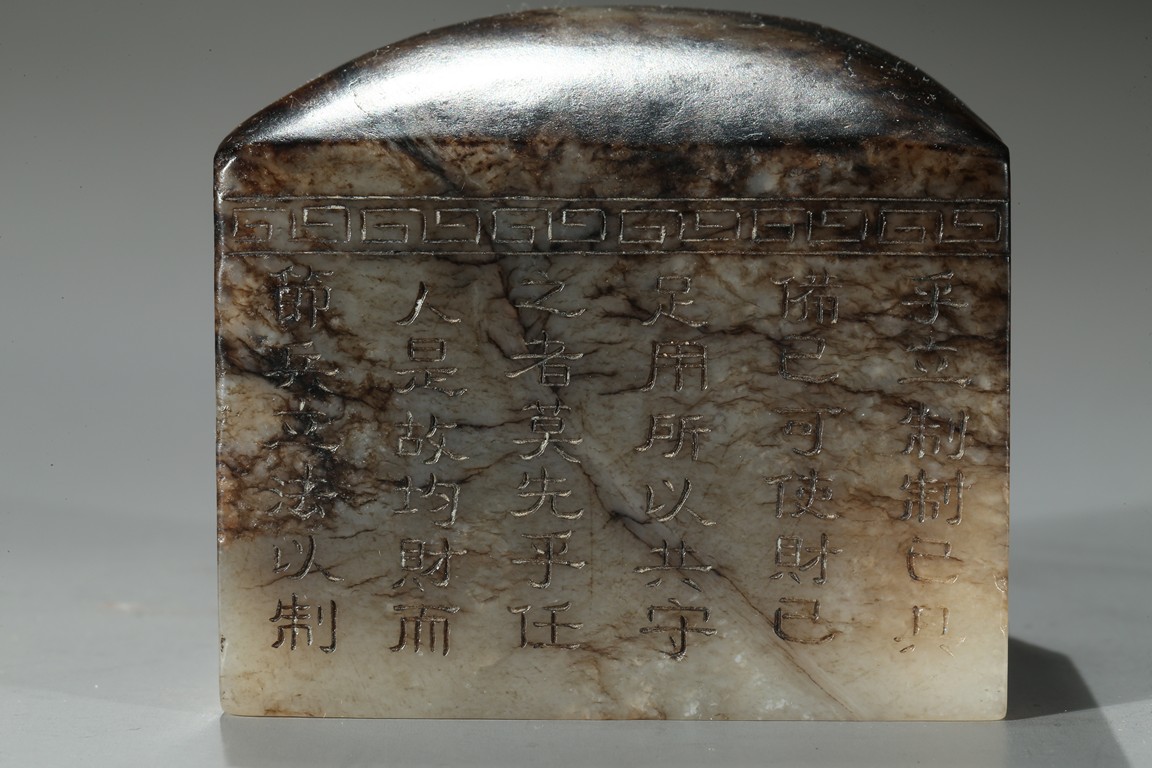 乎立制制已具
備已可使財已
足用所以共守
之者莫先乎任
人是故均財而
節兵法以制